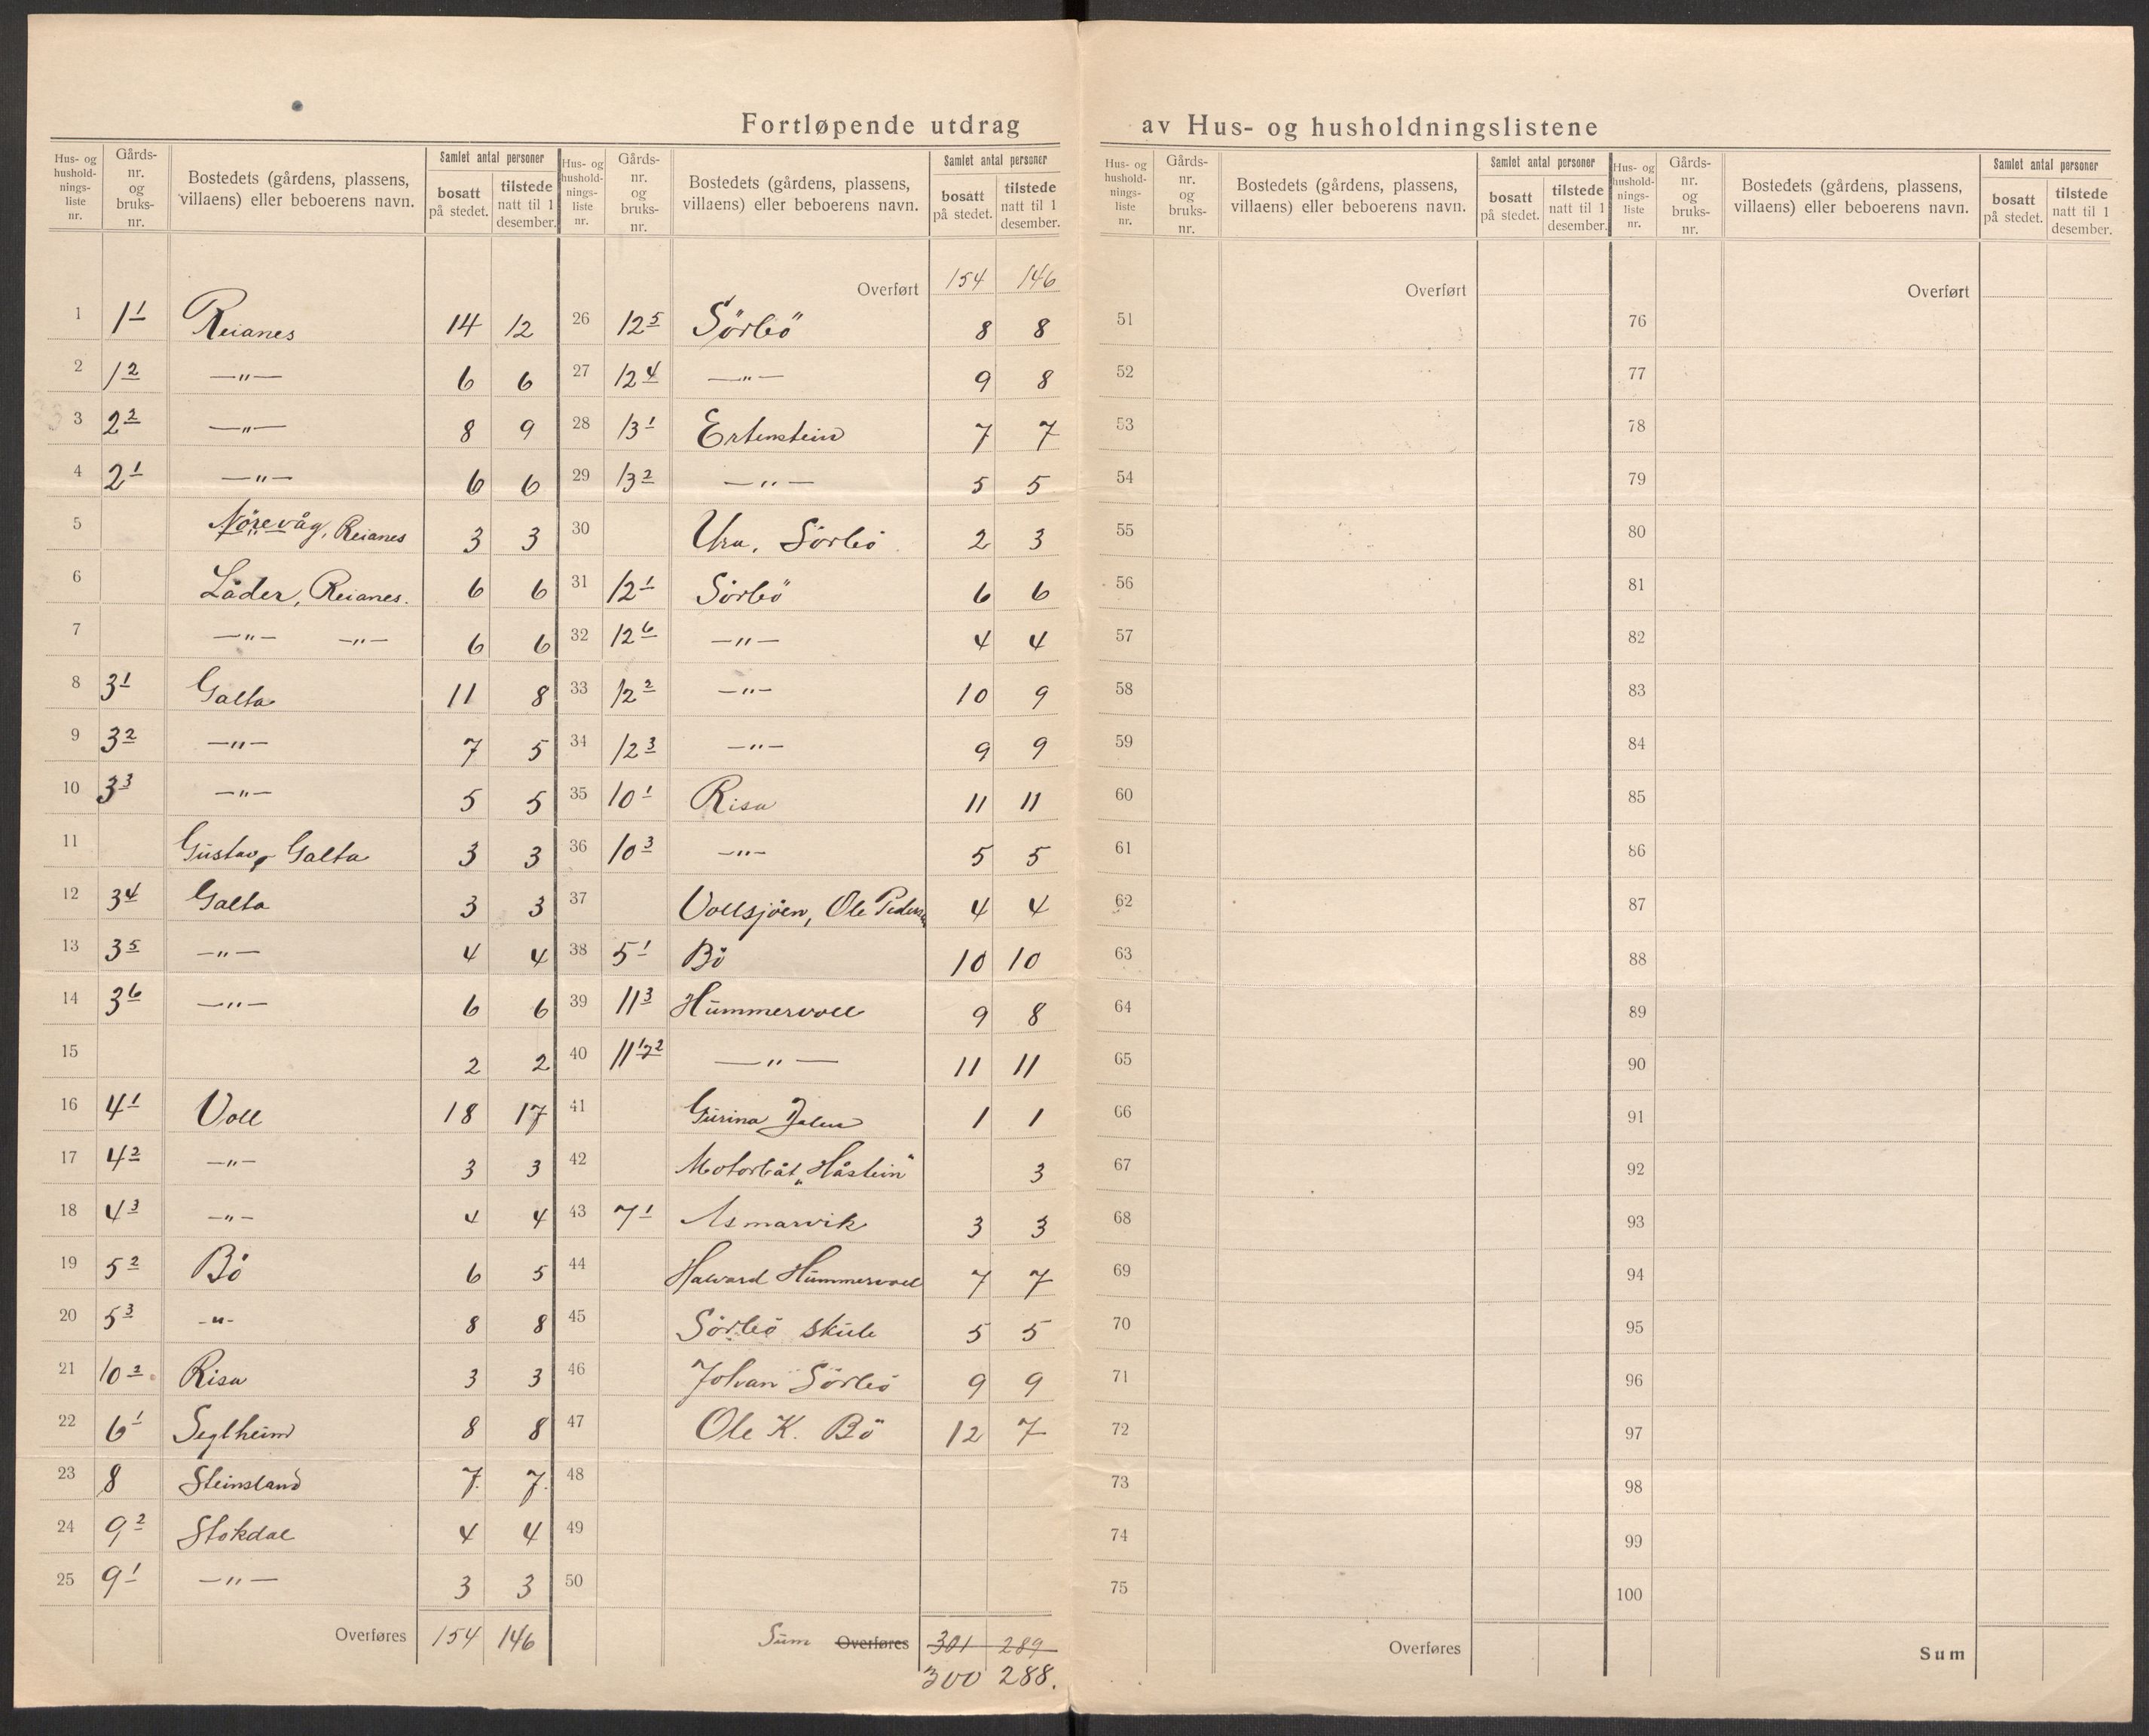 Fortløpende utdrag av Hus- og husholdningslistene
Hus- og hushold- nings- liste nr. | Gårds- nr. og bruks- nr. | Bostedets (gårdens, plassens, villaens) eller beboerens navn. | Samlet antal personer | bosatt på stedet. | tilstede natt til 1 desember.
1 1¹ Reianes 14 12
2 1² —"— 6 6
3 2² —"— 8 9
4 2¹ —"— 6 6
5 Nörevåg, Reianes 3 3
6 Låder, Reianes. 6 6
7 —"— —"— 6 6
8 3¹ Galta 11 8
9 3² —"— 7 5
10 3³ —"— 5 5
11 Gustav, Galta 3 3
12 3⁴ Galta 3 3
13 3⁵ —"— 4 4
14 3⁶ —"— 6 6
15 2 2
16 4¹ Voll 18 17
17 4² —"— 3 3
18 4³ —"— 4 4
19 5² Bö 6 5
20 5³ -"- 8 8
21 10² Risa 3 3
22 6¹ Seglheim 8 8
23 8 Steinsland 7. 7.
24 9² Stokdal 4 4
25 9¹ —"— 3 3
Overføres 154 146
Hus- og hushold- nings- liste nr. | Gårds- nr. og bruks- nr. | Bostedets (gårdens, plassens, villaens) eller beboerens navn. | Samlet antal personer | bosatt på stedet. | tilstede natt til 1 desember.
Overført 154 146
26 12⁵ Sörbö 8 8
27 12⁴ —"— 9 8
28 13¹ Ertenstein 7 7
29 13² —"— 5 5
30 Ura, Sörbö 2 3
31 12¹ Sörbö 6 6
32 12⁶ —"— 4 4
33 12² —"— 10 9
34 12³ —"— 9 9
35 10¹ Risa 11 11
36 10³ —"— 5 5
37 Vollsjöen, Ole Pedersen 4 4
38 5¹ Bö 10 10
39 11³ Hummervoll 9 8
40 11 —"— 11 11
41 Gurina 1 1
42 Motorbåt „Håstein" 3
43 7¹ Asmarvik 3 3
44 Halvard Hummervoll 7 7
45 Sörbö skule 5 5
46 Johan Sörbö 9 9
47 Ole K. Bö 12 7
48
49
50
Sum Overføres 301 289
300 288.
Hus- og hushold- nings- liste nr. | Gårds- nr. og bruks- nr. | Bostedets (gårdens, plassens, villaens) eller beboerens navn. | Samlet antal personer | bosatt på stedet. | tilstede natt til 1 desember.
Overført
51
52
53
54
55
56
57
58
59
60
61
62
63
64
65
66
67
68
69
70
71
72
73
74
75
Overføres
Hus- og hushold- nings- liste nr. | Gårds- nr. og bruks- nr. | Bostedets (gårdens, plassens, villaens) eller beboerens navn. | Samlet antal personer | bosatt på stedet. | tilstede natt til 1 desember.
Overført
76
77
78
79
80
81
82
83
84
85
86
87
88
89
90
91
92
93
94
95
96
97
98
99
100
Sum